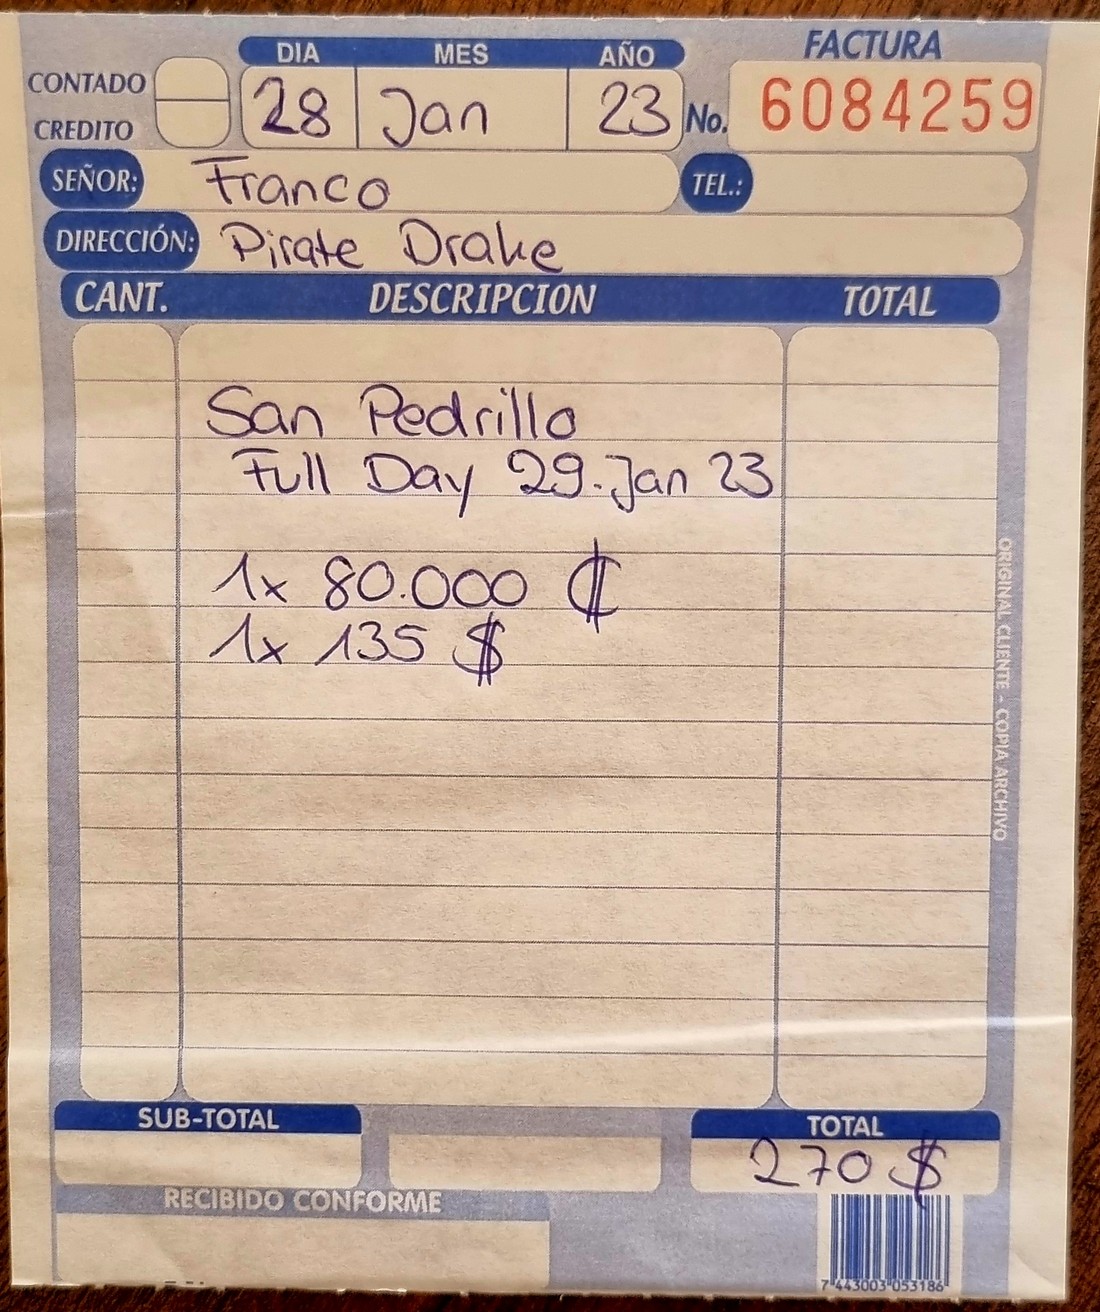 DIA MES AÑO FACTURA
CONTADO
CREDITO
28 Jan 23 No. 6084259
SEÑOR: Franco TEL.:
DIRECCIÓN: Pirate Drake
CANT. DESCRIPCION TOTAL
San Pedrillo
Full Day 29. Jan 23
1x 80.000 ₡
1x 135 $
ORIGINAL CLIENTE - COPIA ARCHIVO
SUB-TOTAL TOTAL
270 $
RECIBIDO CONFORME
7 443003 053186